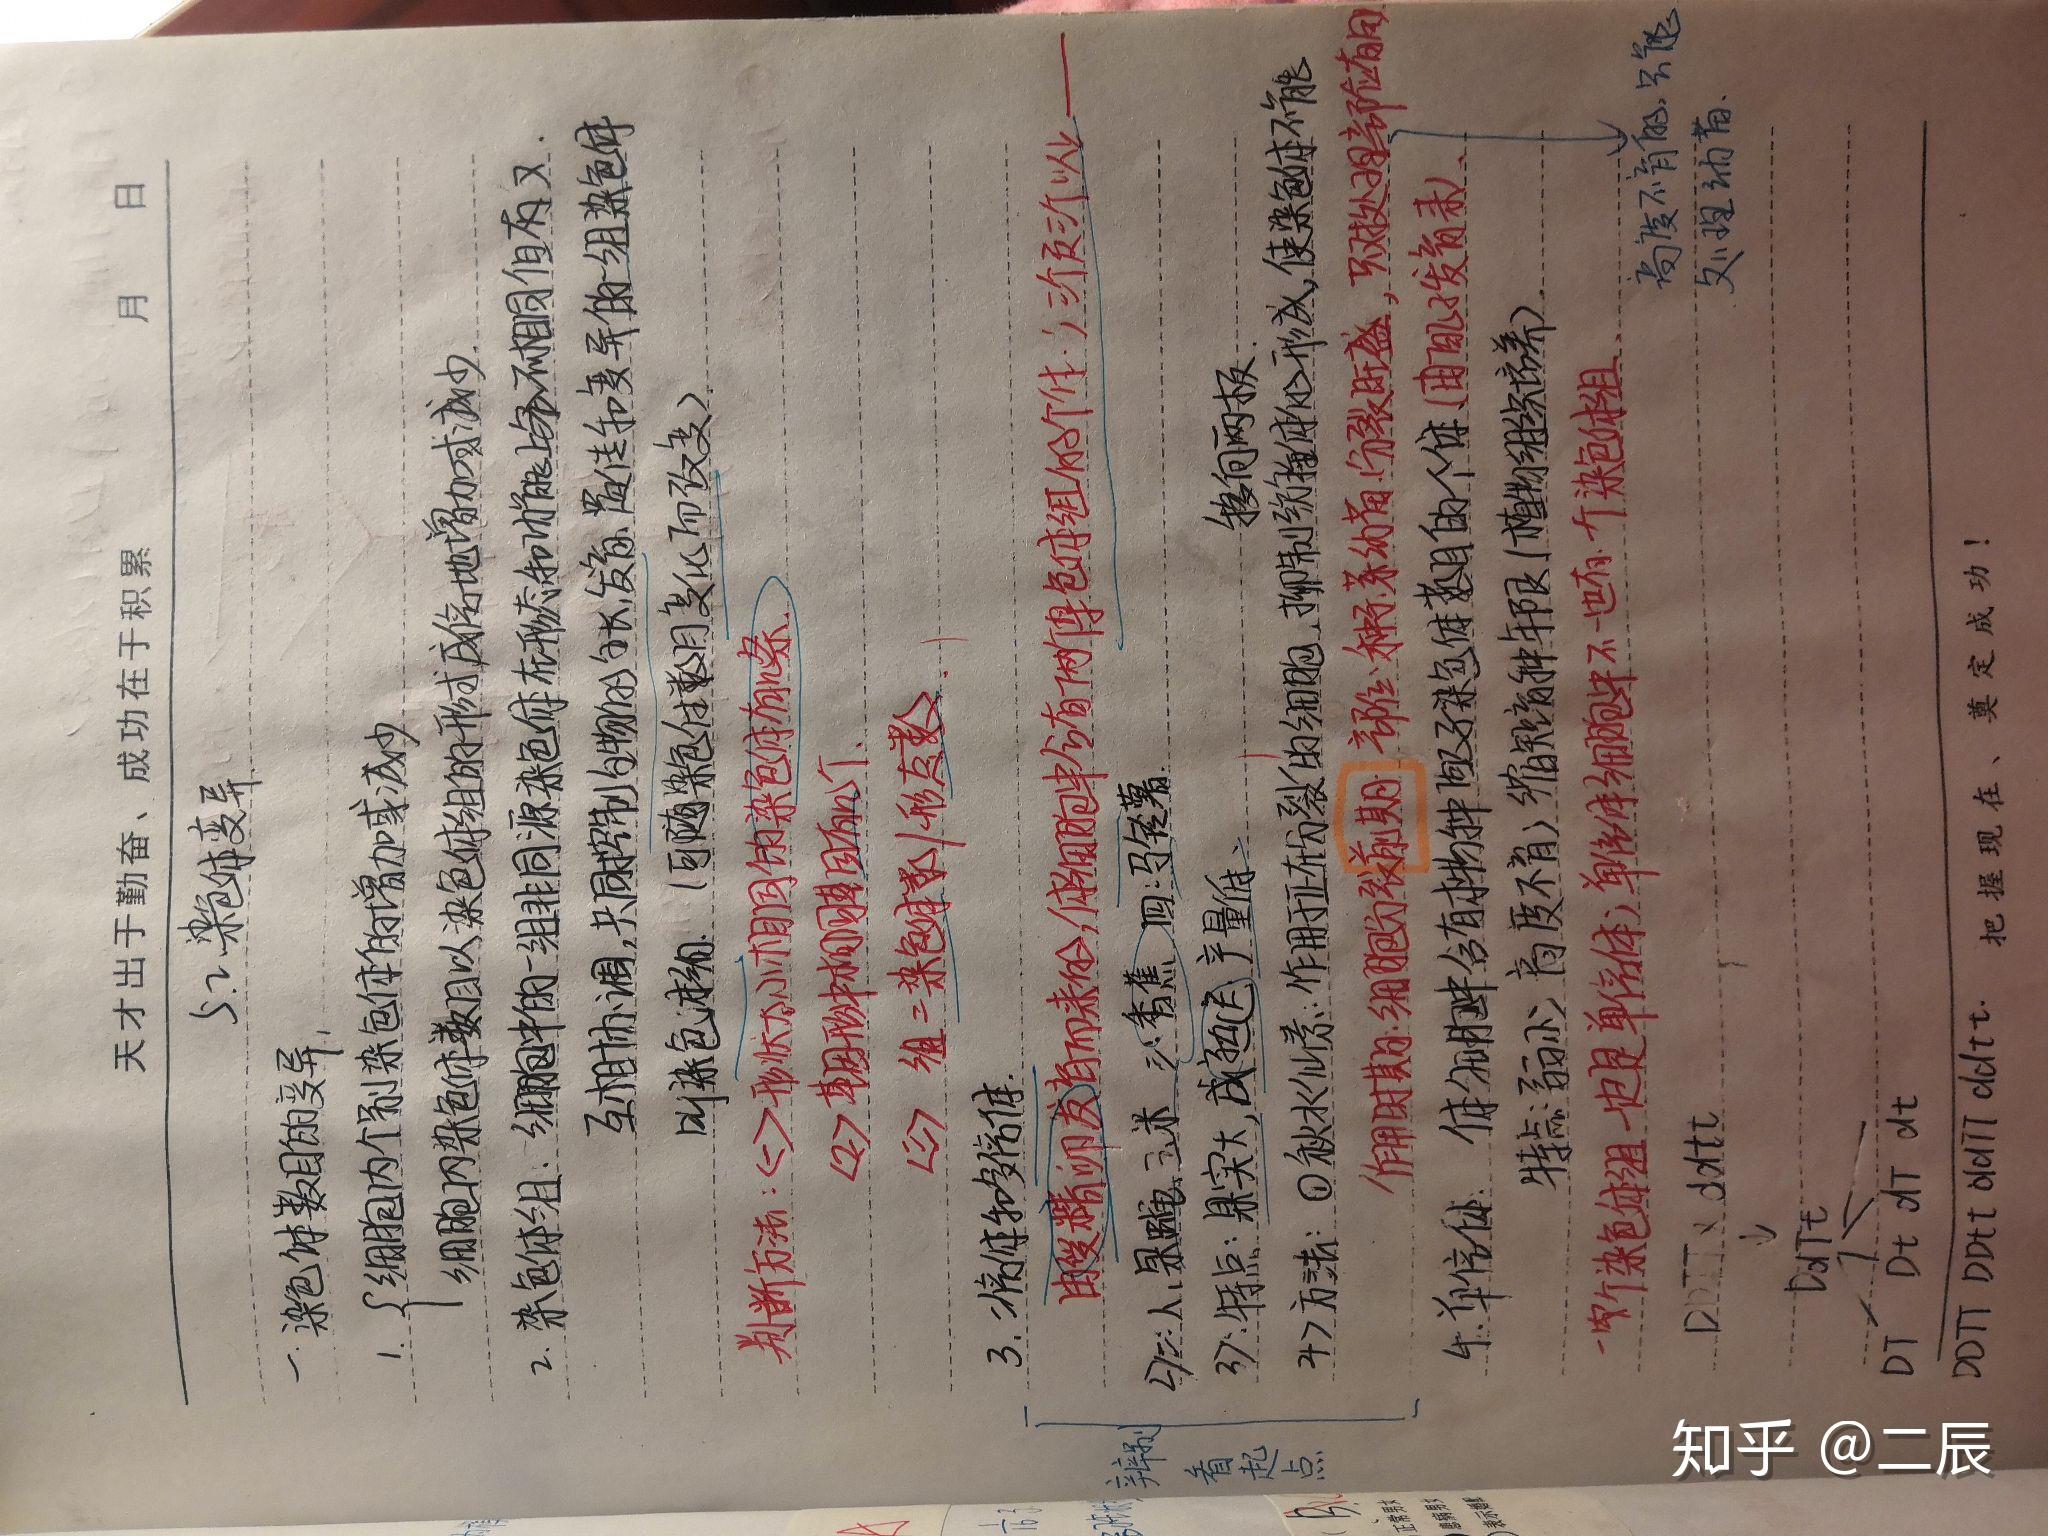 天才出于勤奋、成功在于积累
月 日
5.2 染色体变异
一. 染色体数目的变异.
1. { 细胞内个别染色体的增加或减少
细胞内染色体数目以染色体组的形式成倍地增加或减少.
2. 染色体组: 细胞中的一组非同源染色体在形态和功能上各不相同但有又
互相协调,共同控制生物的生长、发育、遗传和变异的一组染色体
叫染色体组. (可随染色体数目变化而改变).
判断方法: <1> 形状大小相同的染色体有几条.
<2> 基因形中相同字母有几个.
<3> 组 = 染色体数/形态数.
3. 二倍体和多倍体.
由受精卵发育而来的,体细胞中含有两个染色体组的个体.) 三个及三个以上—
2) 二: 人、果蝇、玉米 三: 香蕉 四: 马铃薯.
3) 特点: 果实大,成熟迟,产量低.
移向两极.
4> 方法: ①秋水仙素: 作用于正在分裂的细胞,抑制纺锤体的形成,使染色体不能
作用时期: 细胞分裂前期. 部位: 种子或幼苗(分裂旺盛,
高度不育的只能
处理幼苗.
4. 单倍体. 体细胞中含有本物种配子染色体数目的个体 (由配子发育来).
特点: 弱小, 高度不育) 缩短育种年限 (植物组织培养)
一个染色体组一定是单倍体; 单倍体细胞中不一定有一个染色体组.
DDTT × ddtt
↓
DdTt
DT Dt dT dt
DDTT DDtt ddTT ddtt.
把握现在、奠定成功!
辨别
看起点
知乎 @二辰